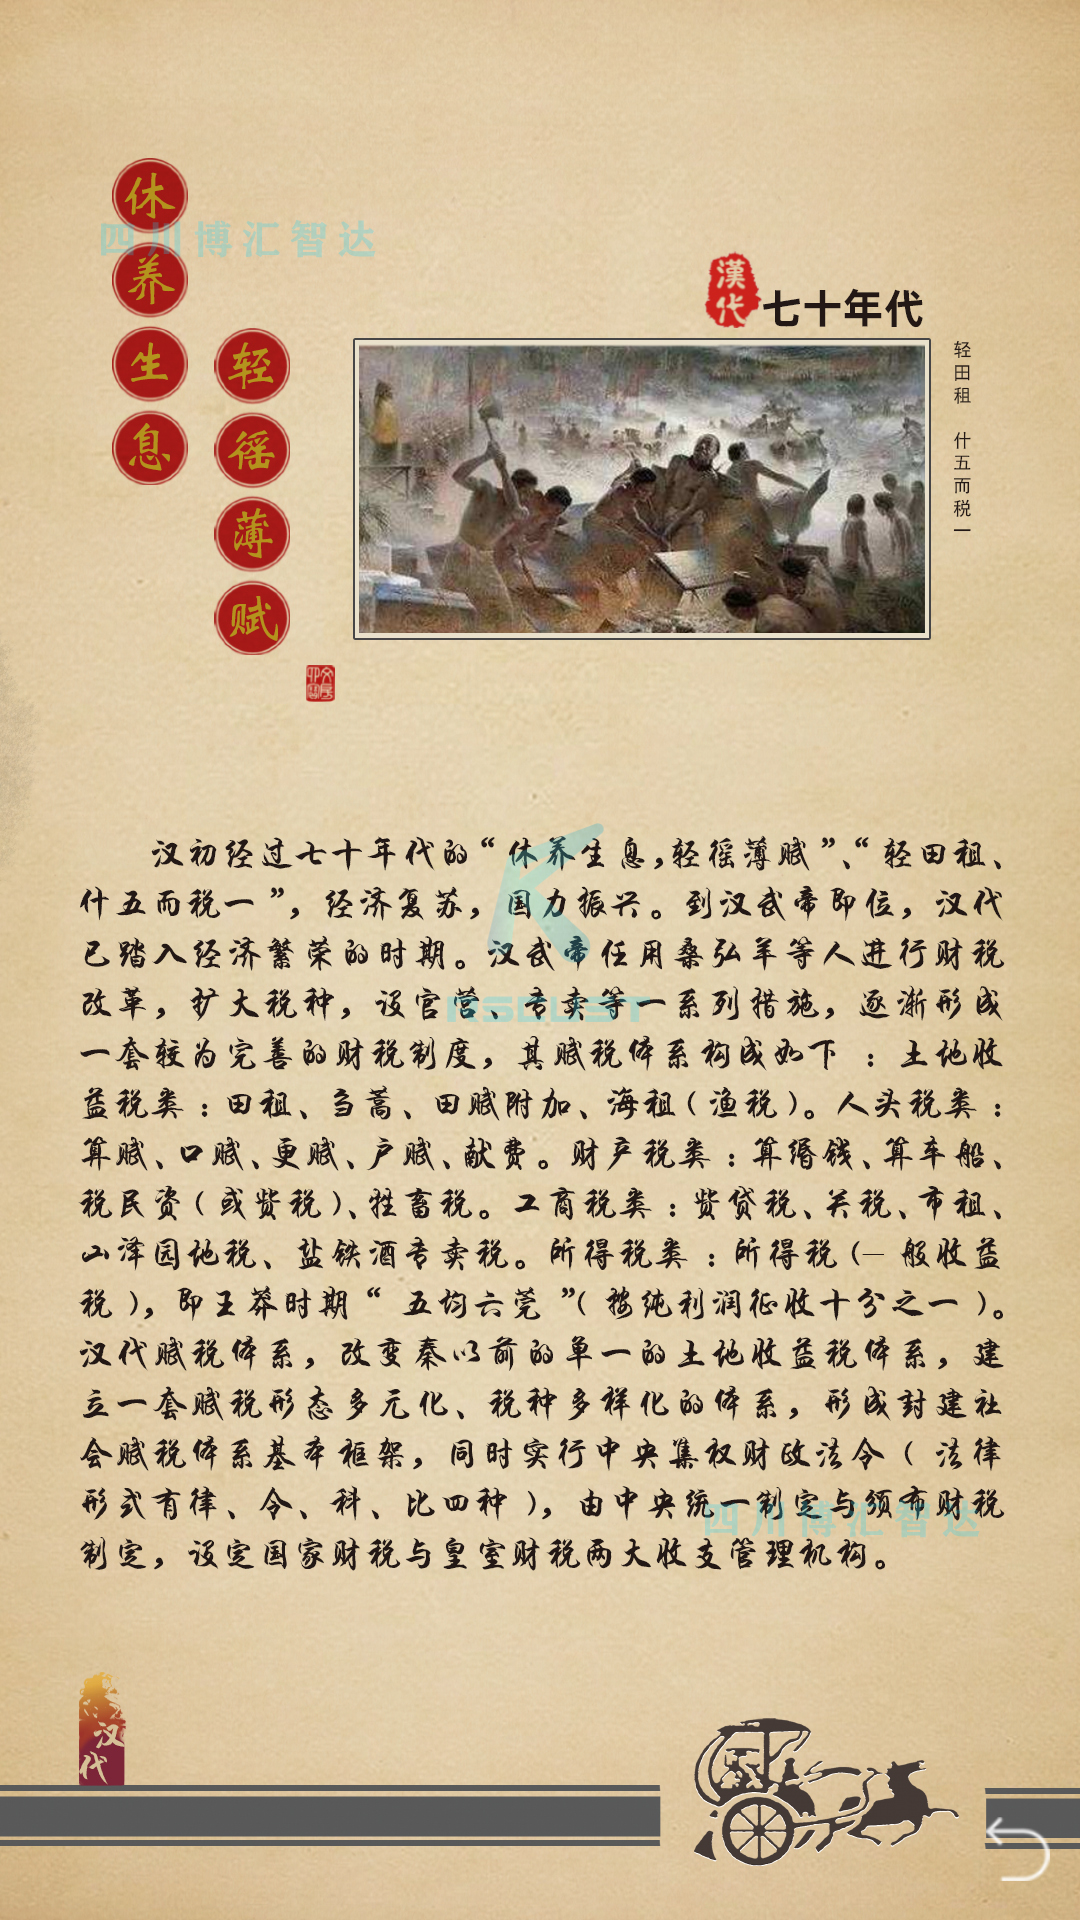 休养生息
轻徭薄赋
四川博汇智达
漢代
七十年代
轻田租 什五而税一
汉初经过七十年代的“休养生息,轻徭薄赋”、“轻田租、
什五而税一”，经济复苏，国力振兴。到汉武帝即位，汉代
已踏入经济繁荣的时期。汉武帝任用桑弘羊等人进行财税
改革，扩大税种，设官营、专卖等一系列措施，逐渐形成
一套较为完善的财税制度，其赋税体系构成如下：土地收
益税类：田租、刍蒿、田赋附加、海租（渔税）。人头税类：
算赋、口赋、更赋、户赋、献费。财产税类：算缗钱、算车船、
税民资（或赀税）、牲畜税。工商税类：赀贷税、关税、市租、
山泽园地税、盐铁酒专卖税。所得税类：所得税（一般收益
税），即王莽时期“五均六莞”（按纯利润征收十分之一）。
汉代赋税体系，改变秦以前的单一的土地收益税体系，建
立一套赋税形态多元化、税种多样化的体系，形成封建社
会赋税体系基本框架，同时实行中央集权财政法令（法律
形式有律、令、科、比四种），由中央统一制定与颁布财税
制定，设定国家财税与皇室财税两大收支管理机构。
四川博汇智达
汉代